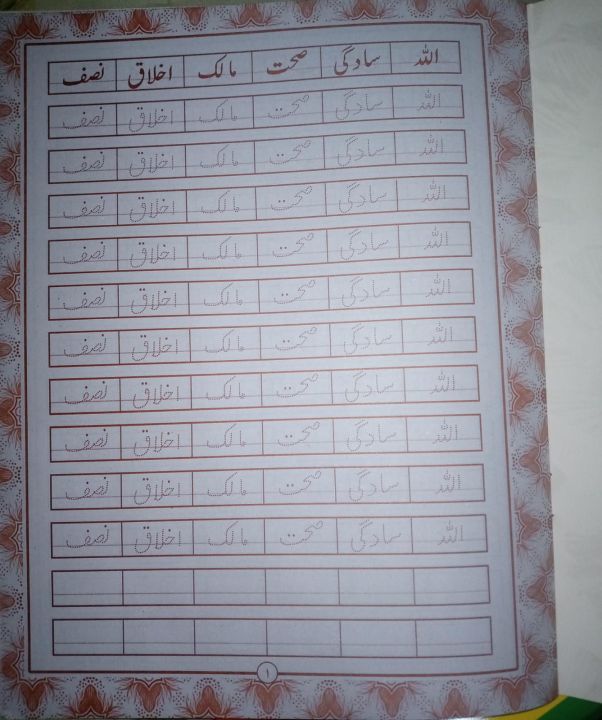 اللہ سادگی صحت مالک اخلاق نصف
اللہ سادگی صحت مالک اخلاق نصف
اللہ سادگی صحت مالک اخلاق نصف
اللہ سادگی صحت مالک اخلاق نصف
اللہ سادگی صحت مالک اخلاق نصف
اللہ سادگی صحت مالک اخلاق نصف
اللہ سادگی صحت مالک اخلاق نصف
اللہ سادگی صحت مالک اخلاق نصف
اللہ سادگی صحت مالک اخلاق نصف
اللہ سادگی صحت مالک اخلاق نصف
اللہ سادگی صحت مالک اخلاق نصف
۱